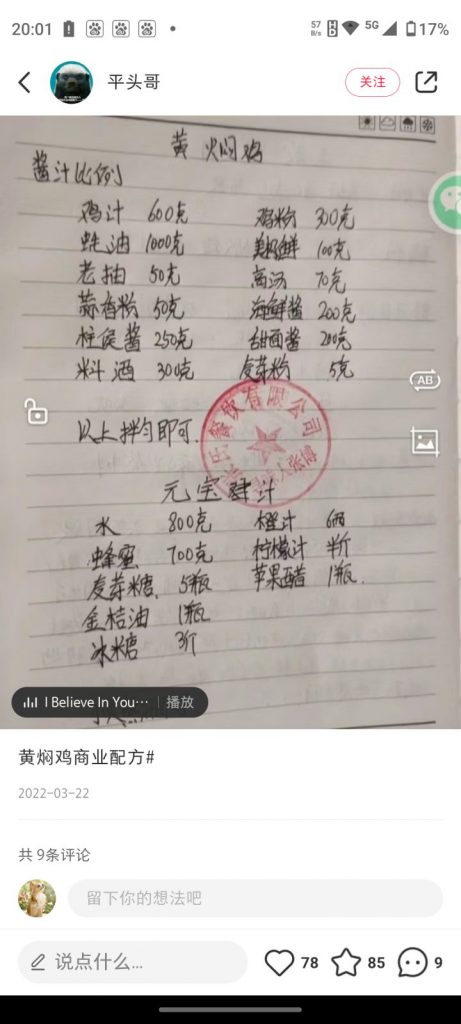 20:01
57 B/s 5G 17%
平头哥
关注
黄焖鸡
酱汁比例
鸡汁 600克 鸡粉 300克
蚝油 1000克 美极鲜 100克
老抽 50克 高汤 70克
蒜香粉 50克 海鲜酱 200克
柱侯酱 250克 甜面酱 200克
料酒 300克 麦芽粉 5克
AB
以上拌匀即可.
餐饮有限公司
元宝肆汁
水 800克 橙汁 6两
蜂蜜 700克 柠檬汁 半斤
麦芽糖. 5瓶 苹果醋 1瓶.
金桔油 1瓶
冰糖 3斤
I Believe In You… 播放
黄焖鸡商业配方#
2022-03-22
共 9条评论
留下你的想法吧
说点什么...
78
85
9